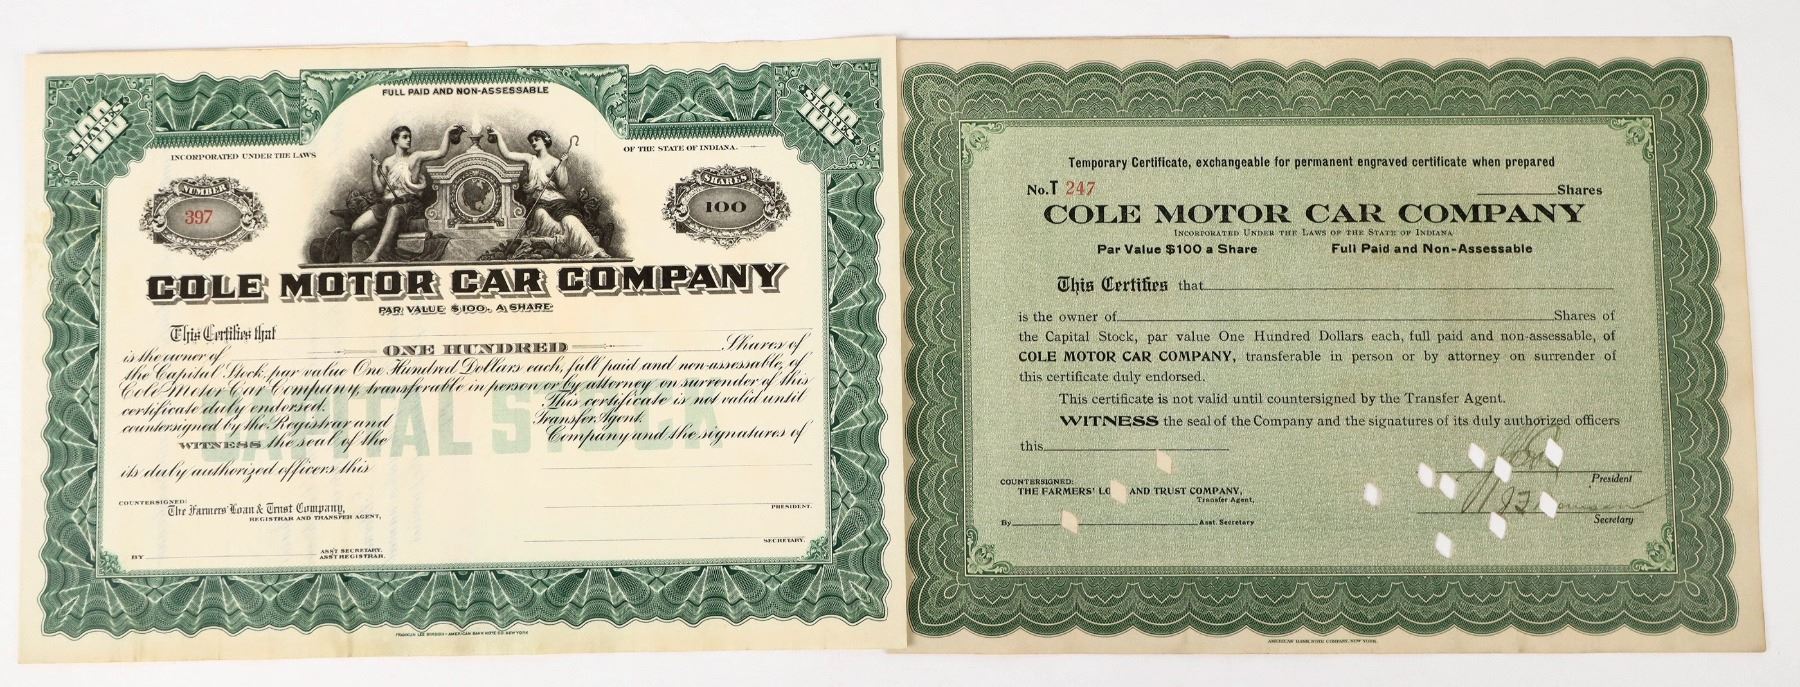 FULL PAID AND NON-ASSESSABLE
100 SHARES
100 SHARES
INCORPORATED UNDER THE LAWS
OF THE STATE OF INDIANA.
NUMBER
397
SHARES
100
COLE MOTOR CAR COMPANY
PAR VALUE $100. A SHARE
This Certifies that
is the owner of ONE HUNDRED Shares of
the Capital Stock, par value One Hundred Dollars each, full paid and non-assessable, of
Cole Motor Car Company, transferable in person or by attorney on surrender of this
certificate duly endorsed. This certificate is not valid until
countersigned by the Registrar and Transfer Agent.
WITNESS the seal of the Company and the signatures of
its duly authorized officers this
CAPITAL STOCK
COUNTERSIGNED:
The Farmers' Loan & Trust Company,
REGISTRAR AND TRANSFER AGENT,
PRESIDENT.
BY
ASS'T SECRETARY.
ASS'T REGISTRAR.
SECRETARY.
FRANKLIN LEE DIVISION - AMERICAN BANK NOTE CO. NEW YORK
Temporary Certificate, exchangeable for permanent engraved certificate when prepared
No. T 247
Shares
COLE MOTOR CAR COMPANY
INCORPORATED UNDER THE LAWS OF THE STATE OF INDIANA
Par Value $100 a Share Full Paid and Non-Assessable
This Certifies that
is the owner of Shares of
the Capital Stock, par value One Hundred Dollars each, full paid and non-assessable, of
COLE MOTOR CAR COMPANY, transferable in person or by attorney on surrender of
this certificate duly endorsed.
This certificate is not valid until countersigned by the Transfer Agent.
WITNESS the seal of the Company and the signatures of its duly authorized officers
this
President
COUNTERSIGNED:
THE FARMERS' LO AND TRUST COMPANY,
Transfer Agent,
By Asst. Secretary
Secretary
AMERICAN BANK NOTE COMPANY, NEW YORK.